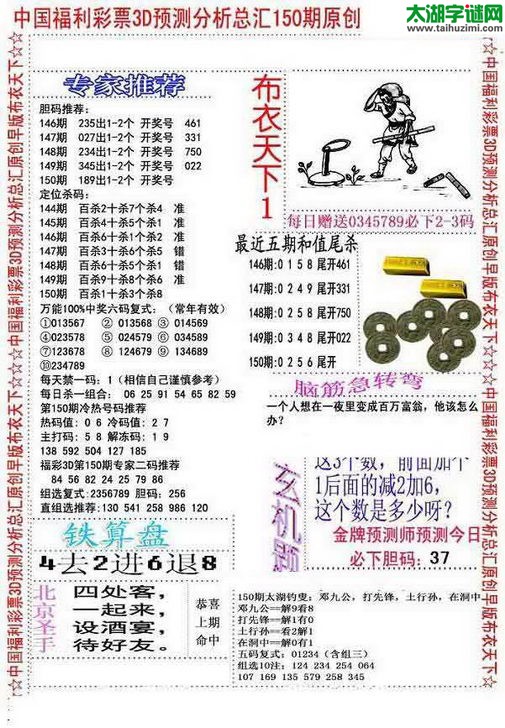 中国福利彩票3D预测分析总汇150期原创
太湖字谜网
www.taihuzimi.com
☆中国福利彩票3D预测分析总汇原创早版布衣天下☆
专家推荐
胆码推荐:
146期 235出1-2个 开奖号 461
147期 027出1-2个 开奖号 331
148期 234出1-2个 开奖号 750
149期 345出1-2个 开奖号 022
150期 189出1-2个 开奖号
定位杀码:
144期 百杀2十杀7个杀4 准
145期 百杀7十杀0个杀1 准
146期 百杀3十杀6个杀5 错
147期 百杀6十杀5个杀1 错
148期 百杀3十杀1个杀6 准
149期 百杀4十杀6个杀9 准
150期 百杀1十杀3个杀8
万能100%中奖六码复式:(常年有效)
①013567 ② 013568 ③ 014569
④023578 ⑤ 024579 ⑥ 034679
⑦123678 ⑧ 124679 ⑨ 134689
⑩234789
每天禁一码: 1(相信自己谨慎参考)
每日杀一组合: 06 25 91 54 65 82 59
第150期冷热号码推荐
热码值: 0 6 冷码值: 2 7
主打码: 5 8 解冻码: 1 9
138 592 504 127 185
福彩3D第150期专家二码推荐
84 56 82 24 25 79 86
组选复式: 2356789 胆码: 256
直组选推荐: 130 541 258 986 120
铁算盘
4去2进6退8
北京圣手
四处客,
一起来,
设酒宴,
待好友。
恭喜
上期
命中
布衣天下1
每日赠送0345789必下2-3码
最近五期和值尾杀
146期: 0 1 5 8 尾开461
147期: 0 2 4 9 尾开331
148期: 0 2 5 8 尾开750
149期: 0 3 4 8 尾开022
150期: 0 2 5 6 尾开
脑筋急转弯
一个人想在一夜里变成百万富翁,他该怎么
办?
玄机题
这3个数,前面加个
1后面的减2加6,
这个数是多少呀?
金牌预测师预测今日
必下胆码: 37
150期太湖钓叟: 邓九公,打先锋,土行孙,在洞中
邓九公==解9看8
打先锋==解1有0
土行孙==看2解1
在洞中==解0有1
五码复式: 01234 (含组三)
组选10注: 124 234 254 064
107 169 135 579 258 345
☆中国福利彩票3D预测分析总汇原创早版布衣天下☆